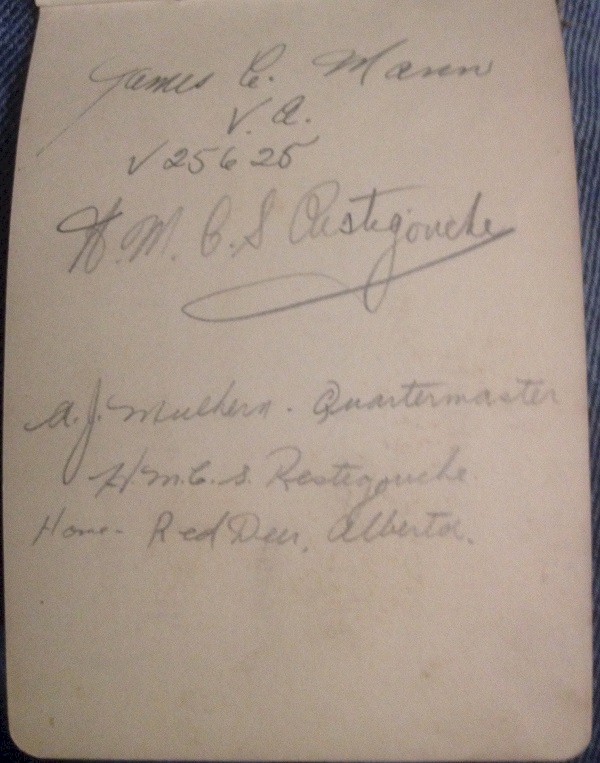 James C. Mann
V. A.
V 25625
H.M.C.S Restigouche
A.J. Mulhern - Quartermaster
H.M.C.S. Restigouche
Home - Red Deer, Alberta.